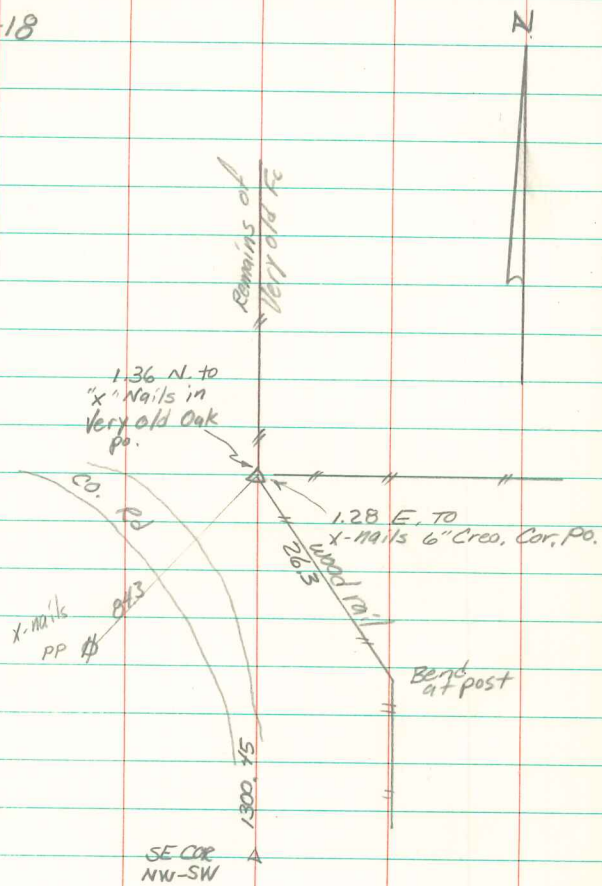 -18
N
Remains of
Very old Fc
1.36 N. to
"x" Nails in
Very old Oak
po.
Co. Rd
1.28 E. To
x-nails 6" Creo. Cor. Po.
wood rail
26.3
84.3
x-nails
PP
Bend
at post
1300.45
SE COR
NW-SW